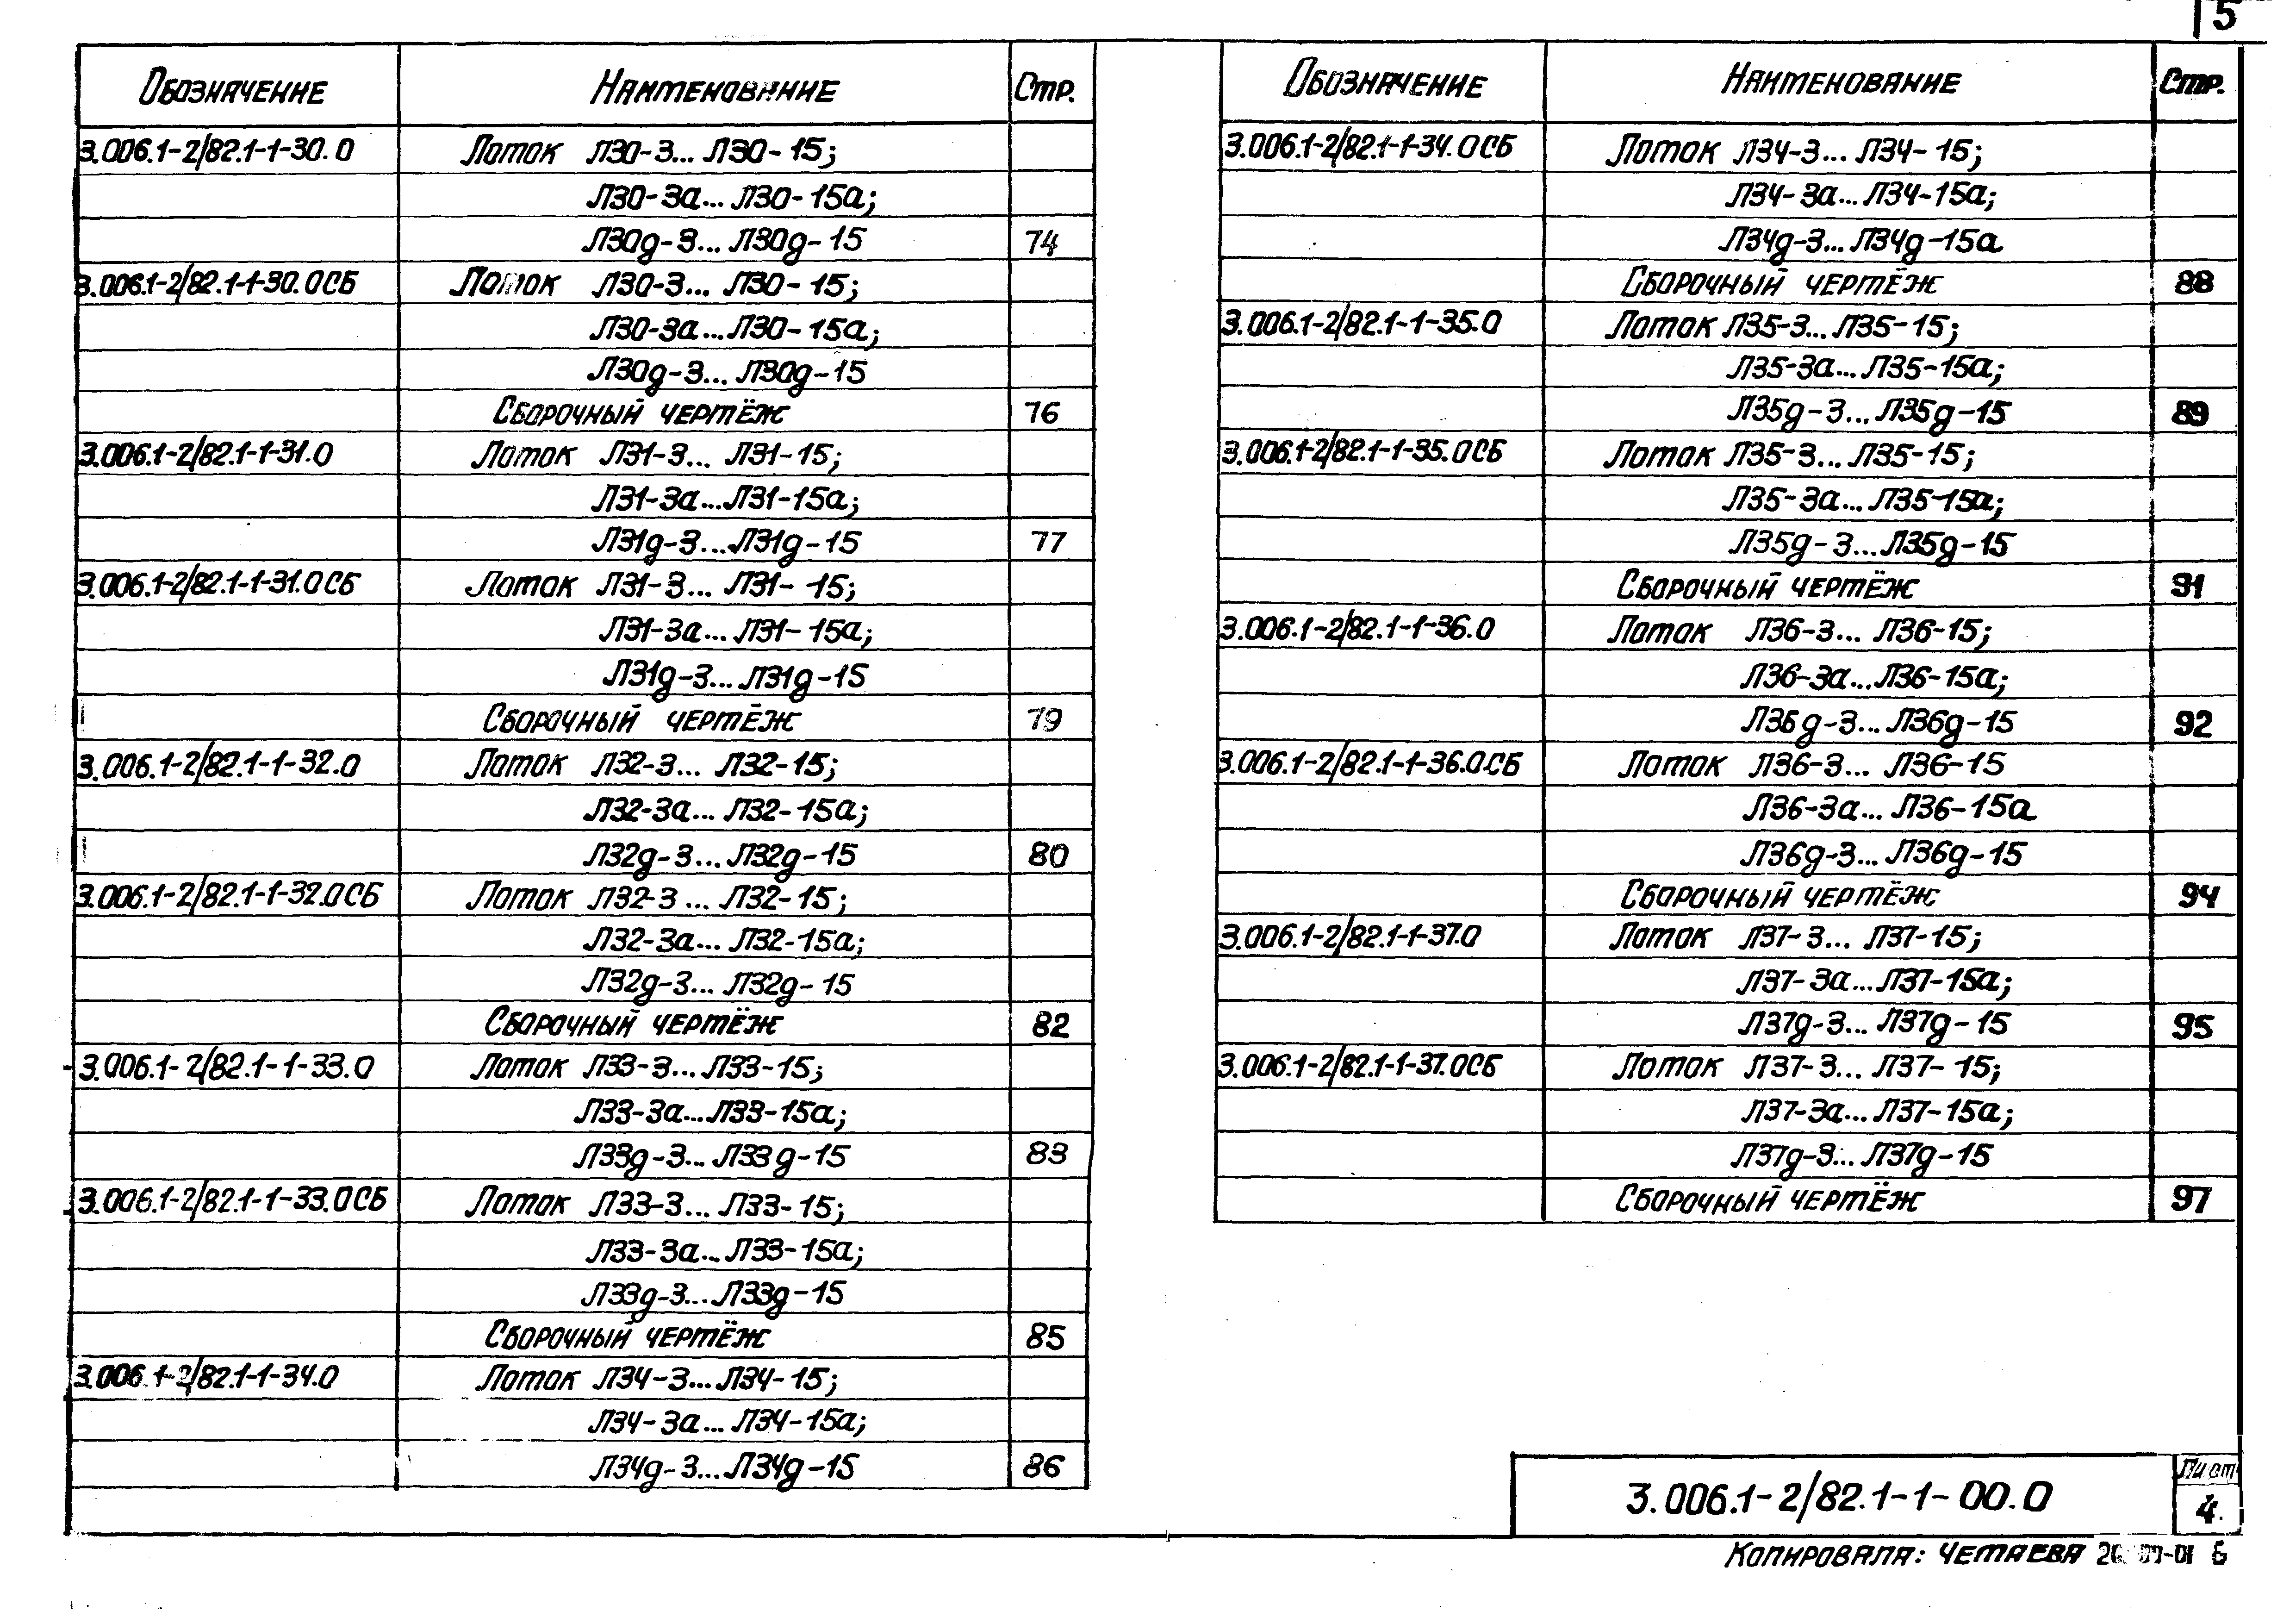 5
Обозначение Наименование Стр.
3.006.1-2/82.1-1-30.0 Лоток Л30-3... Л30-15;
Л30-3а... Л30-15а;
Л30д-3... Л30д-15 74
3.006.1-2/82.1-1-30.0СБ Лоток Л30-3... Л30-15;
Л30-3а... Л30-15а;
Л30д-3... Л30д-15
Сборочный чертёж 76
3.006.1-2/82.1-1-31.0 Лоток Л31-3... Л31-15;
Л31-3а... Л31-15а;
Л31д-3... Л31д-15 77
3.006.1-2/82.1-1-31.0СБ Лоток Л31-3... Л31-15;
Л31-3а... Л31-15а;
Л31д-3... Л31д-15
Сборочный чертёж 79
3.006.1-2/82.1-1-32.0 Лоток Л32-3... Л32-15;
Л32-3а... Л32-15а;
Л32д-3... Л32д-15 80
3.006.1-2/82.1-1-32.0СБ Лоток Л32-3... Л32-15;
Л32-3а... Л32-15а;
Л32д-3... Л32д-15
Сборочный чертёж 82
3.006.1-2/82.1-1-33.0 Лоток Л33-3... Л33-15;
Л33-3а... Л33-15а;
Л33д-3... Л33д-15 83
3.006.1-2/82.1-1-33.0СБ Лоток Л33-3... Л33-15;
Л33-3а... Л33-15а;
Л33д-3... Л33д-15
Сборочный чертёж 85
3.006.1-2/82.1-1-34.0 Лоток Л34-3... Л34-15;
Л34-3а... Л34-15а;
Л34д-3... Л34д-15 86
Обозначение Наименование Стр.
3.006.1-2/82.1-1-34.0СБ Лоток Л34-3... Л34-15;
Л34-3а... Л34-15а;
Л34д-3... Л34д-15а
Сборочный чертёж 88
3.006.1-2/82.1-1-35.0 Лоток Л35-3... Л35-15;
Л35-3а... Л35-15а;
Л35д-3... Л35д-15 89
3.006.1-2/82.1-1-35.0СБ Лоток Л35-3... Л35-15;
Л35-3а... Л35-15а;
Л35д-3... Л35д-15
Сборочный чертёж 91
3.006.1-2/82.1-1-36.0 Лоток Л36-3... Л36-15;
Л36-3а... Л36-15а;
Л36д-3... Л36д-15 92
3.006.1-2/82.1-1-36.0СБ Лоток Л36-3... Л36-15
Л36-3а... Л36-15а
Л36д-3... Л36д-15
Сборочный чертёж 94
3.006.1-2/82.1-1-37.0 Лоток Л37-3... Л37-15;
Л37-3а... Л37-15а;
Л37д-3... Л37д-15 95
3.006.1-2/82.1-1-37.0СБ Лоток Л37-3... Л37-15;
Л37-3а... Л37-15а;
Л37д-3... Л37д-15
Сборочный чертёж 97
3.006.1-2/82.1-1-00.0
Лист
4
Копировала: Четаева 6